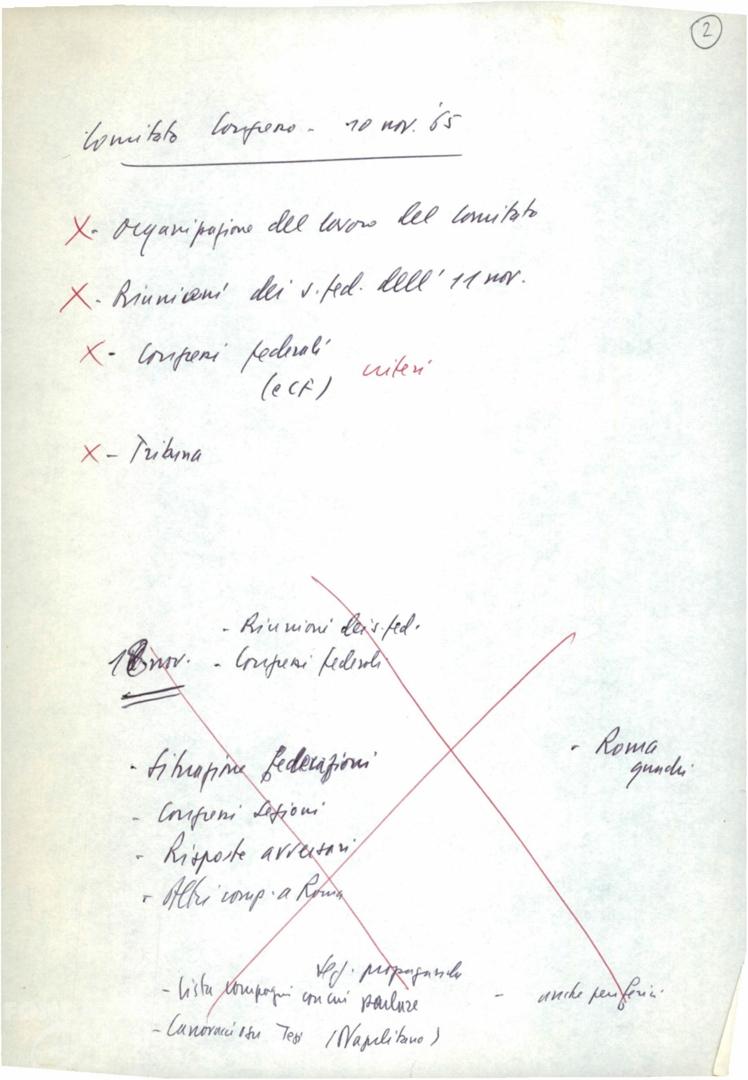 2
Comitato Congresso - 10 nov. '65
X - Organizzazione del lavoro del Comitato
X - Riunioni dei s. fed. dell' 11 nov.
X - Congressi federali criteri
(e CF)
X - Tribuna
- Riunioni dei s. fed.
nov. - Congressi federali
- Situazione federazioni
- Roma
quadri
- Congressi sezioni
- Risposte avversari
- Altri comp. a Roma
propaganda
- Lista compagni con cui parlare - anche periferici
- su Tesi (Napolitano)